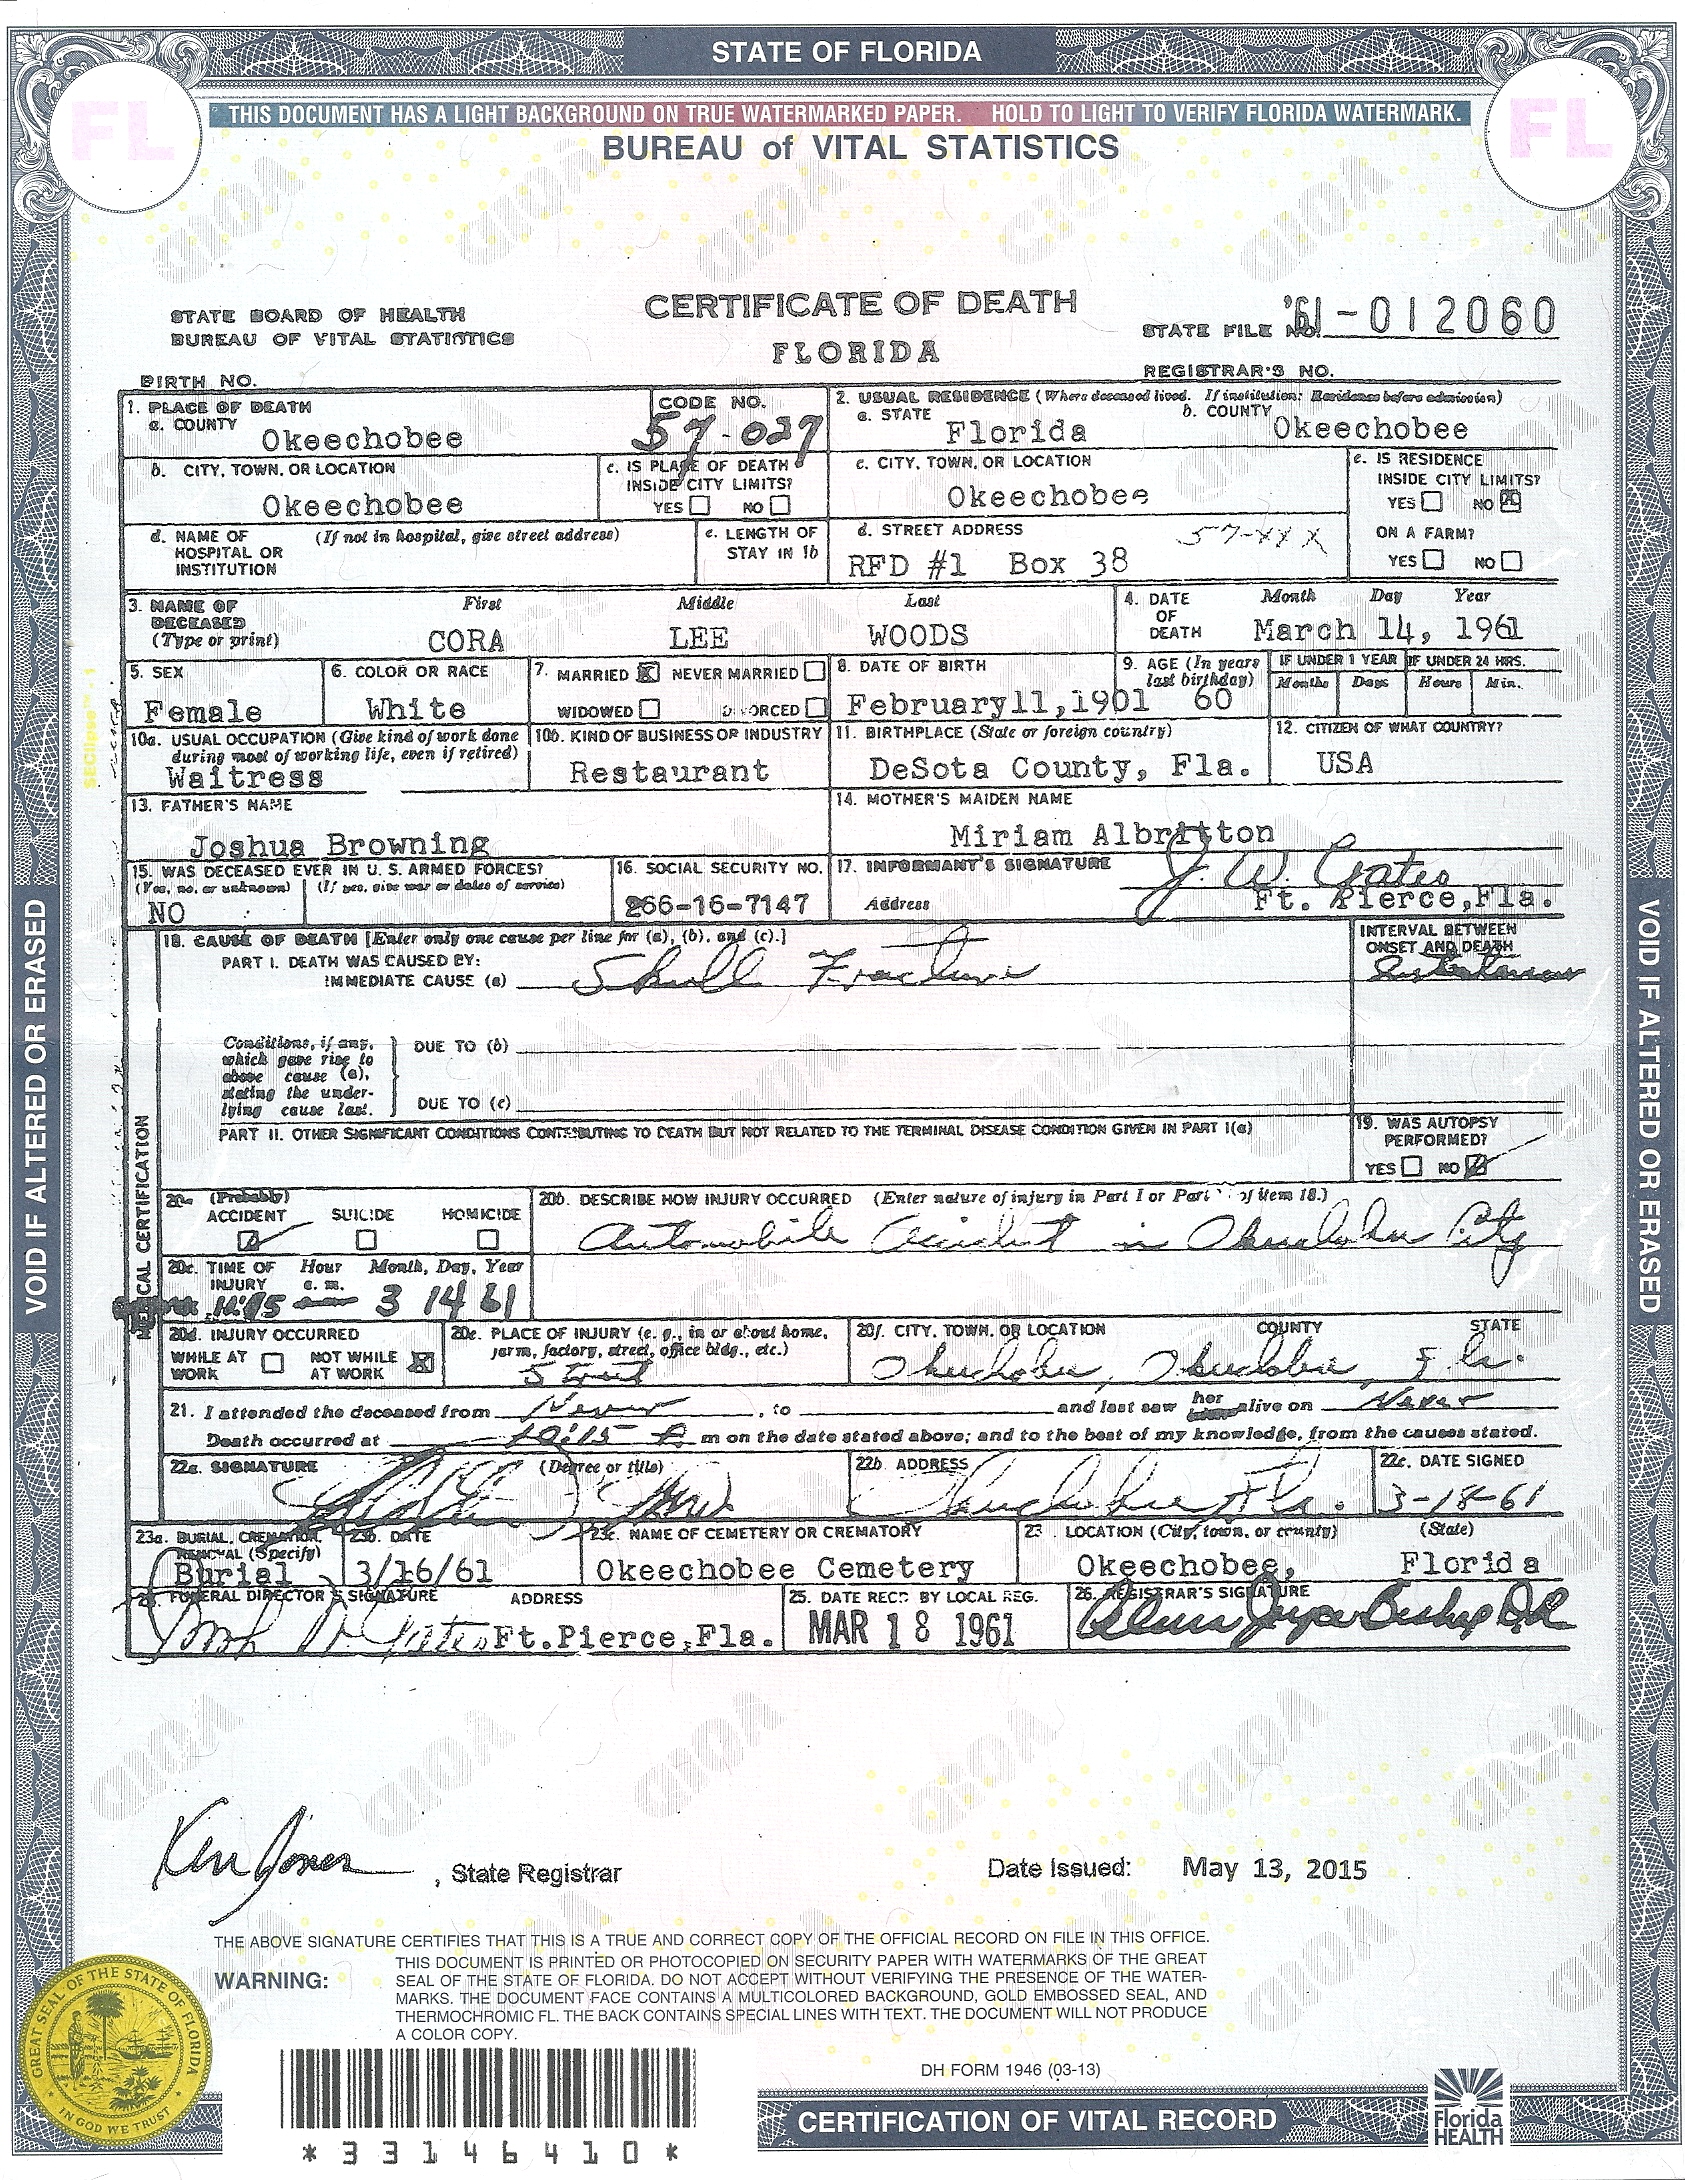 STATE OF FLORIDA
THIS DOCUMENT HAS A LIGHT BACKGROUND ON TRUE WATERMARKED PAPER. HOLD TO LIGHT TO VERIFY FLORIDA WATERMARK.
FL
FL
BUREAU of VITAL STATISTICS
STATE BOARD OF HEALTH
BUREAU OF VITAL STATISTICS
CERTIFICATE OF DEATH
FLORIDA
STATE FILE NO. '61-012060
BIRTH NO.
REGISTRAR'S NO.
1. PLACE OF DEATH
a. COUNTY Okeechobee
CODE NO. 57-027
2. USUAL RESIDENCE (Where deceased lived. If institution: Residence before admission)
a. STATE Florida b. COUNTY Okeechobee
b. CITY, TOWN, OR LOCATION Okeechobee
c. IS PLACE OF DEATH INSIDE CITY LIMITS? YES NO
c. CITY, TOWN, OR LOCATION Okeechobee
e. IS RESIDENCE INSIDE CITY LIMITS? YES NO X
d. NAME OF HOSPITAL OR INSTITUTION (If not in hospital, give street address)
c. LENGTH OF STAY IN 1b
d. STREET ADDRESS 57-XXX
RFD #1 Box 38
ON A FARM? YES NO
3. NAME OF DECEASED (Type or print)
First Middle Last
CORA LEE WOODS
4. DATE OF DEATH Month Day Year
March 14, 1961
5. SEX Female
6. COLOR OR RACE White
7. MARRIED X NEVER MARRIED
WIDOWED DIVORCED
8. DATE OF BIRTH February11,1901
9. AGE (In years last birthday) 60
IF UNDER 1 YEAR Months Days
IF UNDER 24 HRS. Hours Min.
10a. USUAL OCCUPATION (Give kind of work done during most of working life, even if retired) Waitress
10b. KIND OF BUSINESS OR INDUSTRY Restaurant
11. BIRTHPLACE (State or foreign country) DeSota County, Fla.
12. CITIZEN OF WHAT COUNTRY? USA
13. FATHER'S NAME Joshua Browning
14. MOTHER'S MAIDEN NAME Miriam Albritton
15. WAS DECEASED EVER IN U. S. ARMED FORCES?
(Yes, no, or unknown) (If yes, give war or dates of service)
NO
16. SOCIAL SECURITY NO. 266-16-7147
17. INFORMANT'S SIGNATURE J. W. Yates
Address Ft. Pierce,Fla.
18. CAUSE OF DEATH [Enter only one cause per line for (a), (b), and (c).]
PART I. DEATH WAS CAUSED BY:
IMMEDIATE CAUSE (a) Skull Fracture
INTERVAL BETWEEN ONSET AND DEATH
Conditions, if any, which gave rise to above cause (a), stating the underlying cause last.
DUE TO (b)
DUE TO (c)
PART II. OTHER SIGNIFICANT CONDITIONS CONTRIBUTING TO DEATH BUT NOT RELATED TO THE TERMINAL DISEASE CONDITION GIVEN IN PART I(a)
19. WAS AUTOPSY PERFORMED? YES NO
MEDICAL CERTIFICATION
20a (Probably)
ACCIDENT SUICIDE HOMICIDE
20b. DESCRIBE HOW INJURY OCCURRED (Enter nature of injury in Part I or Part of item 18.)
Automobile accident in Okeechobee City
20c. TIME OF INJURY Hour a. m. Month, Day, Year
3 14 61
20d. INJURY OCCURRED
WHILE AT WORK NOT WHILE AT WORK X
20e. PLACE OF INJURY (e. g., in or about home, farm, factory, street, office bldg., etc.)
Street
20f. CITY, TOWN, OR LOCATION COUNTY STATE
Okeechobee, Okeechobee, Fla.
21. I attended the deceased from Never, to and last saw her alive on Never
Death occurred at 10:15 P. m on the date stated above; and to the best of my knowledge, from the causes stated.
22a. SIGNATURE (Degree or title)
22b. ADDRESS Okeechobee Fla.
22c. DATE SIGNED 3-18-61
23a. BURIAL, CREMATION, REMOVAL (Specify) Burial
23b. DATE 3/16/61
23c. NAME OF CEMETERY OR CREMATORY Okeechobee Cemetery
23 . LOCATION (City, town, or county) (State)
Okeechobee, Florida
24. FUNERAL DIRECTOR'S SIGNATURE ADDRESS
Yates Ft.Pierce,Fla.
25. DATE REC'D BY LOCAL REG.
MAR 18 1961
26. REGISTRAR'S SIGNATURE
Bishop
Ken Jones, State Registrar
Date Issued: May 13, 2015
THE ABOVE SIGNATURE CERTIFIES THAT THIS IS A TRUE AND CORRECT COPY OF THE OFFICIAL RECORD ON FILE IN THIS OFFICE.
WARNING:
THIS DOCUMENT IS PRINTED OR PHOTOCOPIED ON SECURITY PAPER WITH WATERMARKS OF THE GREAT
SEAL OF THE STATE OF FLORIDA. DO NOT ACCEPT WITHOUT VERIFYING THE PRESENCE OF THE WATER-
MARKS. THE DOCUMENT FACE CONTAINS A MULTICOLORED BACKGROUND, GOLD EMBOSSED SEAL, AND
THERMOCHROMIC FL. THE BACK CONTAINS SPECIAL LINES WITH TEXT. THE DOCUMENT WILL NOT PRODUCE
A COLOR COPY.
GREAT SEAL OF THE STATE OF FLORIDA
IN GOD WE TRUST
DH FORM 1946 (03-13)
*33146410*
CERTIFICATION OF VITAL RECORD
Florida
HEALTH
VOID IF ALTERED OR ERASED
VOID IF ALTERED OR ERASED